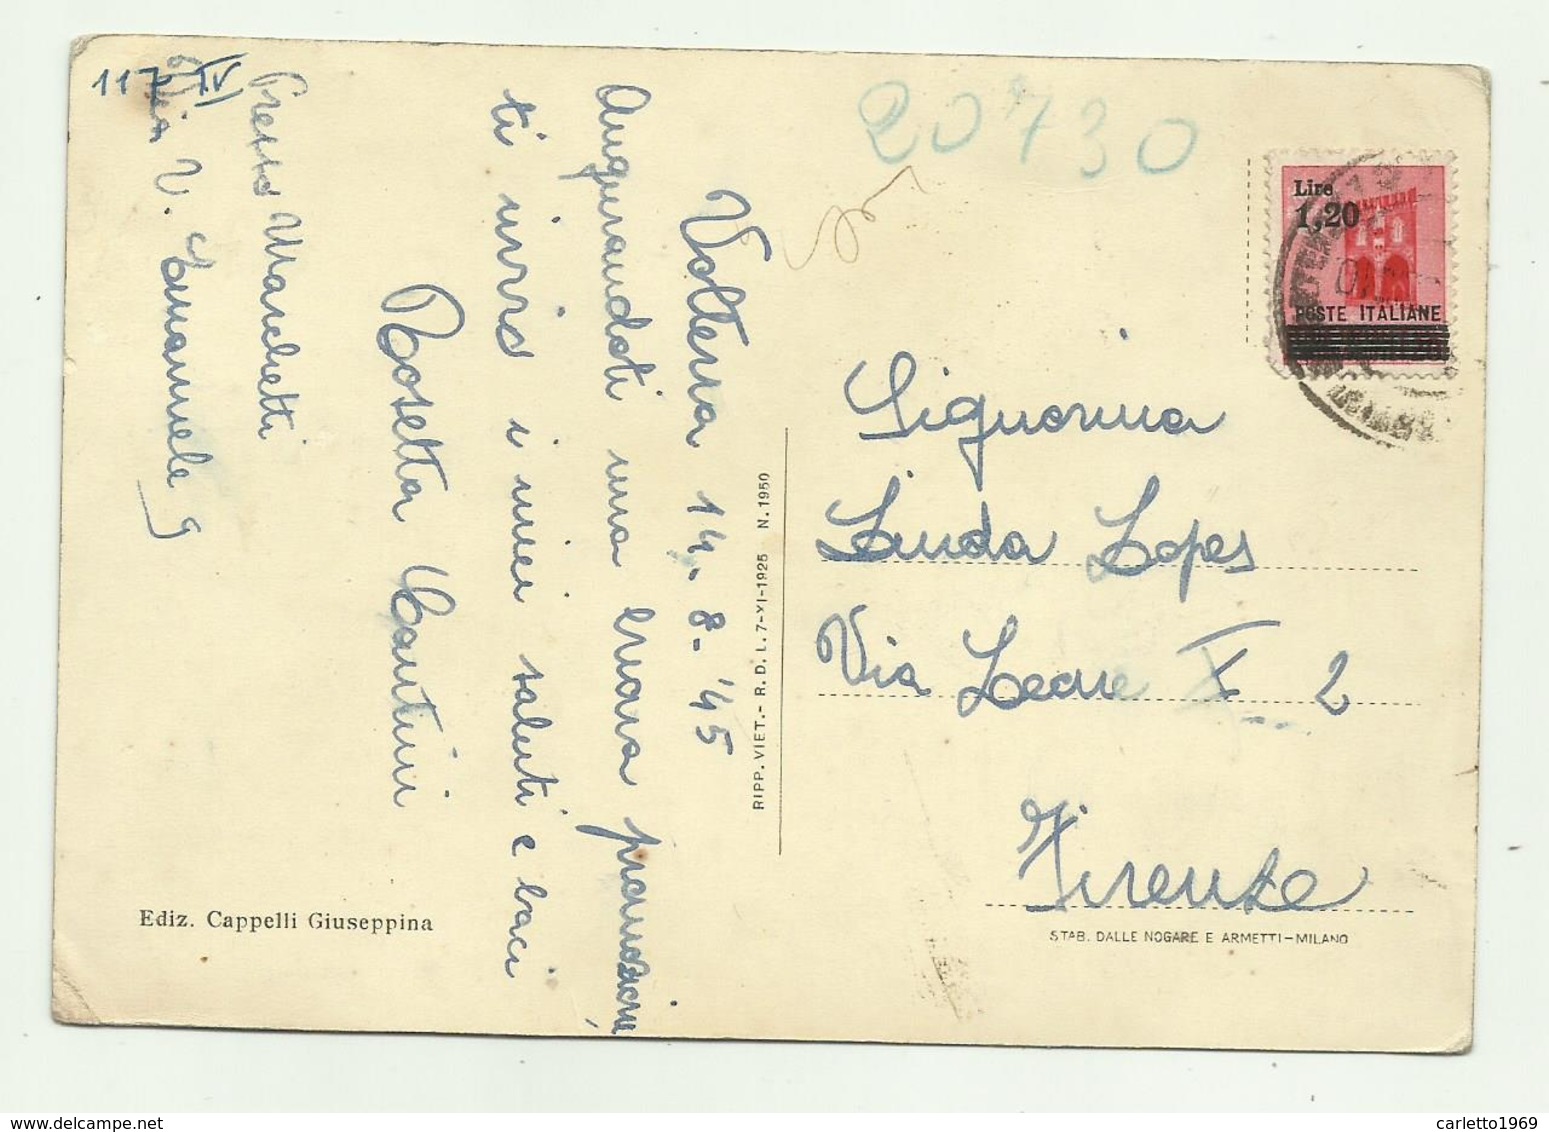 117 IV
Volterra 14. 8- '45
Augurandoti una buona promozione,
ti invio i miei saluti e baci
Rosetta Cantini
Presso Marchetti
Via V. Emanuele 9
Ediz. Cappelli Giuseppina
RIPP. VIET.- R. D. L. 7-XI-1925 N. 1950
20730
Lire
1,20
POSTE ITALIANE
Signorina
Linda Lopes
Via Leone X 2
Firenze
STAB. DALLE NOGARE E ARMETTI-MILANO
carletto1969